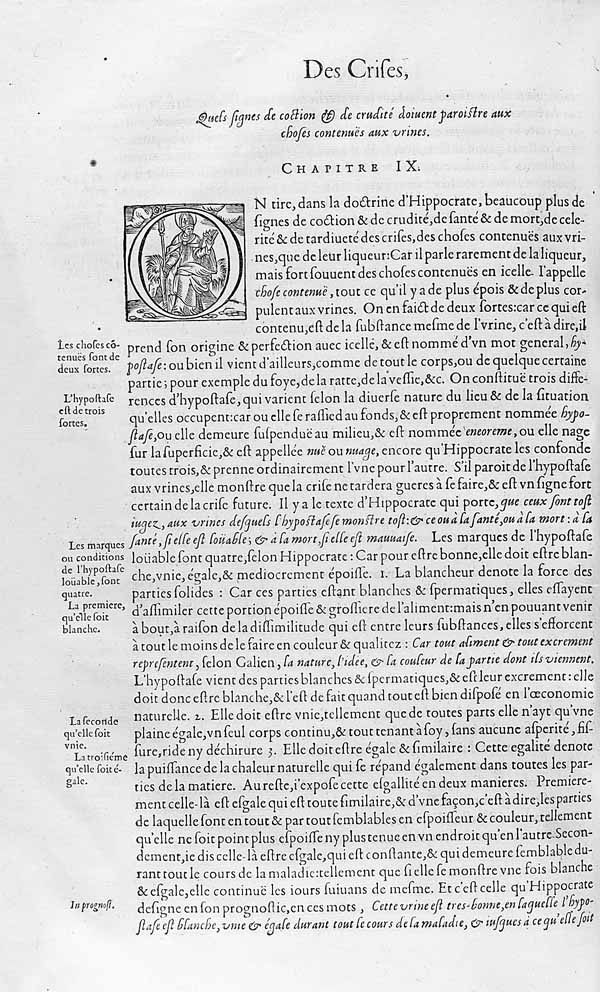 Des Crises,
Quels ſignes de coction & de crudité doiuent paroiſtre aux
choſes contenuës aux vrines.
CHAPITRE IX.
ON tire, dans la doctrine d'Hippocrate, beaucoup plus de
ſignes de coction & de crudité, de ſanté & de mort, de cele-
rité & de tardiueté des criſes, des choſes contenuës aux vri-
nes, que de leur liqueur: Car il parle rarement de la liqueur,
mais fort ſouuent des choſes contenuës en icelle. I'appelle
choſe contenuë, tout ce qu'il y a de plus épois & de plus cor-
pulent aux vrines. On en faict de deux ſortes: car ce qui eſt
contenu, eſt de la ſubſtance meſme de l'vrine, c'eſt à dire, il
Les choſes cō-
tenuës ſont de
deux ſortes.
prend ſon origine & perfection auec icelle, & eſt nommé d'vn mot general, hy-
poſtaſe: ou bien il vient d'ailleurs, comme de tout le corps, ou de quelque certaine
partie; pour exemple du foye, de la ratte, de la veſſie, &c. On conſtituë trois diffe-
L'hypoſtaſe
eſt de trois
ſortes.
rences d'hypoſtaſe, qui varient ſelon la diuerſe nature du lieu & de la ſituation
qu'elles occupent: car ou elle ſe raſſied au fonds, & eſt proprement nommée hypo-
ſtaſe, ou elle demeure ſuſpenduë au milieu, & eſt nommée eneoreme, ou elle nage
ſur la ſuperficie, & eſt appellée nuë ou nuage, encore qu'Hippocrate les confonde
toutes trois, & prenne ordinairement l'vne pour l'autre. S'il paroit de l'hypoſtaſe
aux vrines, elle monſtre que la criſe ne tardera gueres à ſe faire, & eſt vn ſigne fort
certain de la criſe future. Il y a le texte d'Hippocrate qui porte, que ceux ſont toſt
iugez, aux vrines deſquels l'hypoſtaſe ſe monſtre toſt: & ce ou à la ſanté, ou à la mort: à la
ſanté, ſi elle eſt loüable; & à la mort, ſi elle eſt mauuaiſe. Les marques de l'hypoſtaſe
Les marques
ou conditions
de l'hypoſtaſe
loüable, ſont
quatre.
loüable ſont quatre, ſelon Hippocrate: Car pour eſtre bonne, elle doit eſtre blan-
che, vnie, égale, & mediocrement époiſſe. 1. La blancheur denote la force des
parties ſolides : Car ces parties eſtant blanches & ſpermatiques, elles eſſayent
La premiere,
qu'elle ſoit
blanche.
d'aſſimiler cette portion époiſſe & groſſiere de l'aliment: mais n'en pouuant venir
à bout, à raiſon de la diſſimilitude qui eſt entre leurs ſubſtances, elles s'efforcent
à tout le moins de le faire en couleur & qualitez: Car tout aliment & tout excrement
repreſentent, ſelon Galien, la nature, l'idee, & la couleur de la partie dont ils viennent.
L'hypoſtaſe vient des parties blanches & ſpermatiques, & eſt leur excrement: elle
doit donc eſtre blanche, & l'eſt de fait quand tout eſt bien diſpoſé en l'œconomie
La ſeconde
qu'elle ſoit
vnie.
naturelle. 2. Elle doit eſtre vnie, tellement que de toutes parts elle n'ayt qu'vne
plaine égale, vn ſeul corps continu, & tout tenant à ſoy, ſans aucune aſperité, fiſ-
ſure, ride ny déchirure 3. Elle doit eſtre égale & ſimilaire : Cette egalité denote
La troiſiéme
qu'elle ſoit é-
gale.
la puiſſance de la chaleur naturelle qui ſe répand également dans toutes les par-
ties de la matiere. Au reſte, i'expoſe cette eſgallité en deux manieres. Premiere-
ment celle-là eſt eſgale qui eſt toute ſimilaire, & d'vne façon, c'eſt à dire, les parties
de laquelle ſont en tout & par tout ſemblables en eſpoiſſeur & couleur, tellement
qu'elle ne ſoit point plus eſpoiſſe ny plus tenue en vn endroit qu'en l'autre. Secon-
dement, ie dis celle-là eſtre eſgale, qui eſt conſtante, & qui demeure ſemblable du-
rant tout le cours de la maladie: tellement que ſi elle ſe monſtre vne fois blanche
& eſgale, elle continuë les iours ſuiuans de meſme. Et c'eſt celle qu'Hippocrate
In prognoſt.
deſigne en ſon prognoſtic, en ces mots, Cette vrine eſt tres-bonne, en laquelle l'hypo-
ſtaſe eſt blanche, vnie & égale durant tout le cours de la maladie, & iuſques à ce qu'elle ſoit